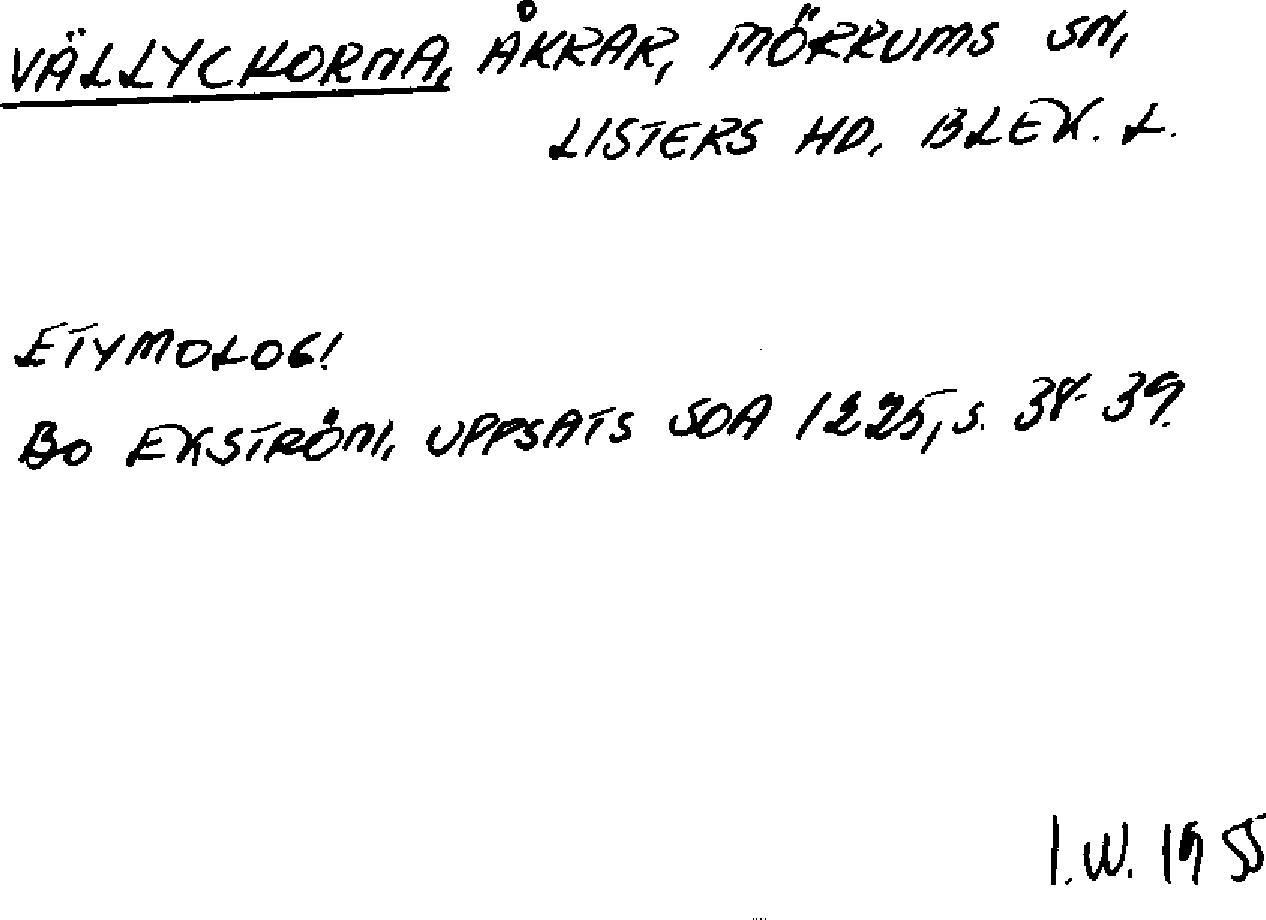 VÄLLYCKORNA, ÅKRAR, MÖRRUMS SN,
LISTERS HD. BLEK. L.
ETYMOLOGI
BO EKSTRÖM, UPPSATS SOA 1225, S. 38-39.
I.W. 1955